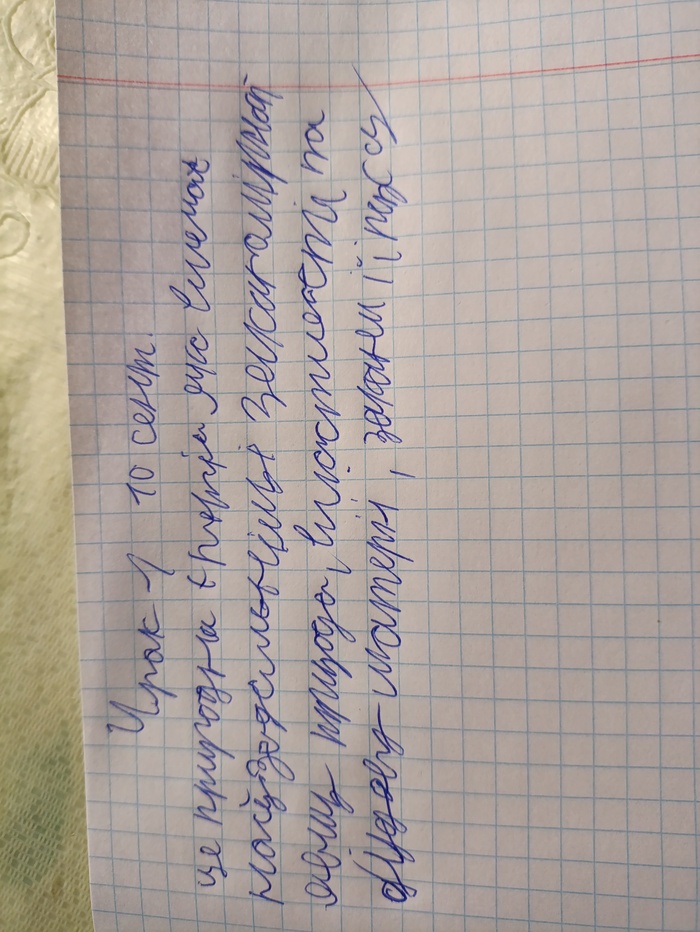 Урок 1 10 сент.
це природна яка вивчає
закономірност
явищ природи, властивості та
будову матерії, закони її руху